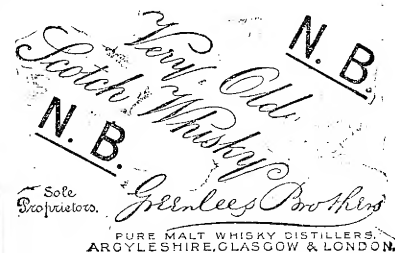 Very Old
Scotch Whisky
N. B.
N. B.
Sole
Proprietors.
Greenlees Brothers
PURE MALT WHISKY DISTILLERS.
ARGYLESHIRE, GLASGOW & LONDON.